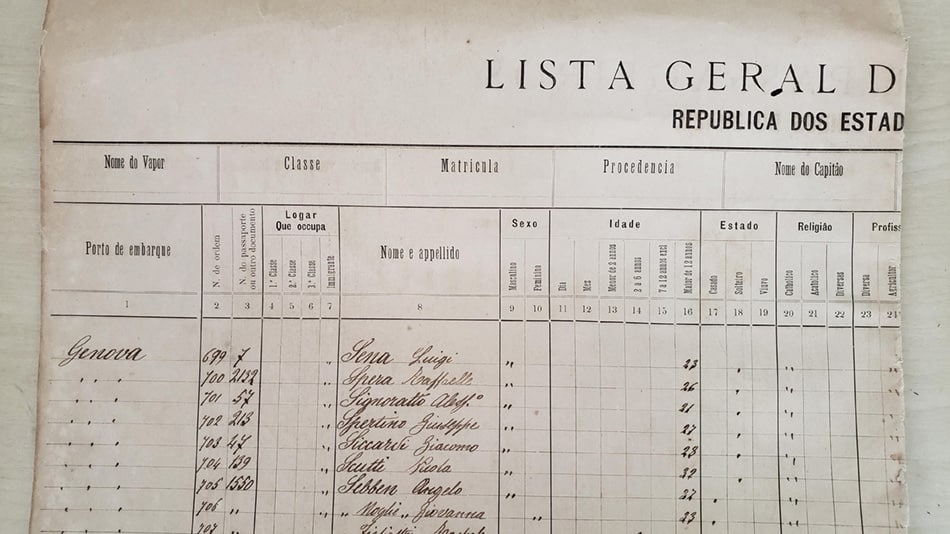 LISTA GERAL D
REPUBLICA DOS ESTAD
Nome do Vapor Classe Matricula Procedencia Nome do Capitão
Porto de embarque N. de ordem N. do passaporte ou outro documento Logar Que occupa Nome e appellido Sexo Idade Estado Religião Profiss
1.ª Classe 2.ª Classe 3.ª Classe Immigrante Masculino Feminino Dia Mez Menor de 2 annos 2 a 6 annos 7 a 12 annos Maior de 12 annos Casado Solteiro Viuvo Catholico Acatolico Diversas Diversa Agricultor
1 2 3 4 5 6 7 8 9 10 11 12 13 14 15 16 17 18 19 20 21 22 23 24
Genova 699 7 „ Sena Luigi „ 23 „ „
„ „ „ 700 2132 „ Spera Raffaele „ 26 „ „
„ „ „ 701 57 „ Signoratto Aless.º „ 21 „ „
„ „ „ 702 213 „ Spertino Giuseppe „ 27 „ „
„ „ „ 703 47 „ Siccardi Giacomo „ 28 „ „
„ „ „ 704 139 „ Scutti Nicola „ 32 „ „
„ „ „ 705 1550 „ Sebben Angelo „ 27 „ „
„ „ „ 706 „ „ „ Moglie „ Giovanna „ 23 „ „
„ „ „ 707